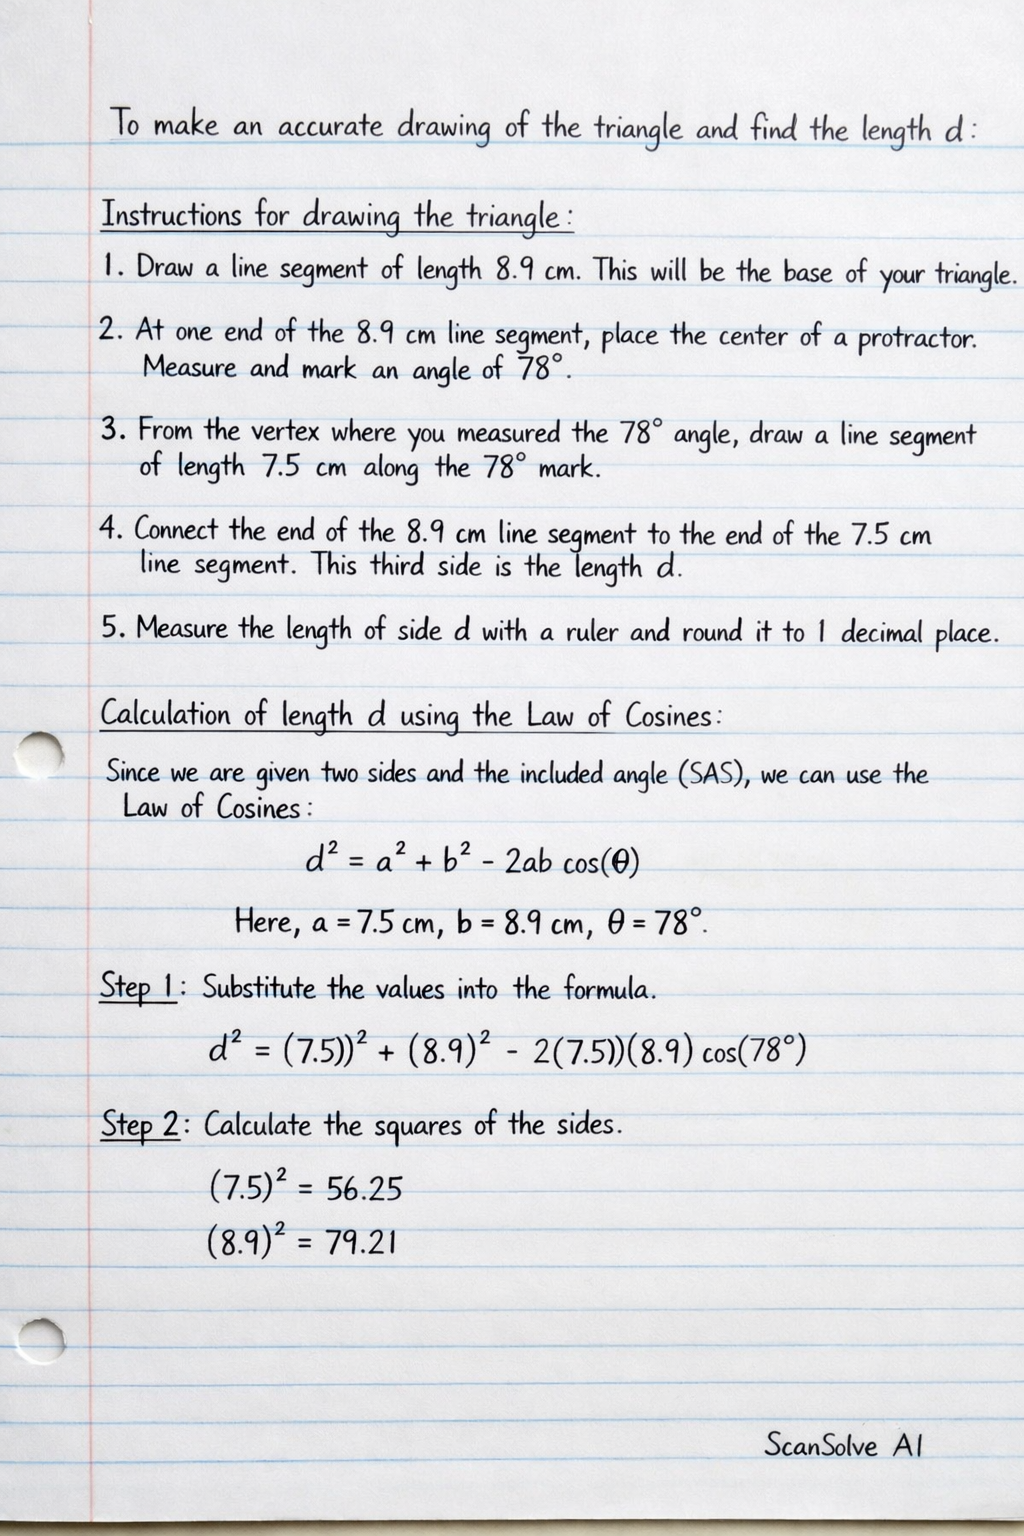 To make an accurate drawing of the triangle and find the length d:
Instructions for drawing the triangle:
1. Draw a line segment of length 8.9 cm. This will be the base of your triangle.
2. At one end of the 8.9 cm line segment, place the center of a protractor.
Measure and mark an angle of 78°.
3. From the vertex where you measured the 78° angle, draw a line segment
of length 7.5 cm along the 78° mark.
4. Connect the end of the 8.9 cm line segment to the end of the 7.5 cm
line segment. This third side is the length d.
5. Measure the length of side d with a ruler and round it to 1 decimal place.
Calculation of length d using the Law of Cosines:
Since we are given two sides and the included angle (SAS), we can use the
Law of Cosines:
d² = a² + b² - 2ab cos(θ)
Here, a = 7.5 cm, b = 8.9 cm, θ = 78°.
Step 1: Substitute the values into the formula.
d² = (7.5))² + (8.9)² - 2(7.5))(8.9) cos(78°)
Step 2: Calculate the squares of the sides.
(7.5)² = 56.25
(8.9)² = 79.21
ScanSolve AI